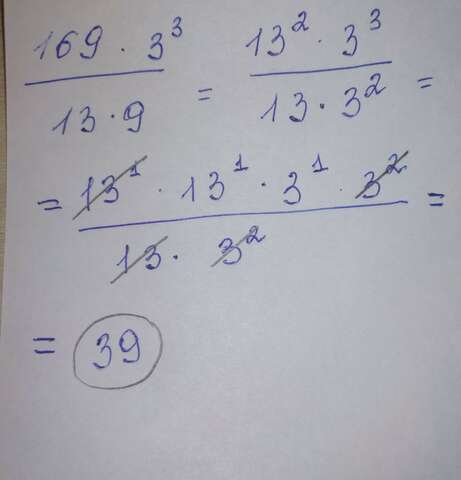 169 · 3³ / 13 · 9 = 13² · 3³ / 13 · 3² =
= 13¹ · 13¹ · 3¹ · 3² / 13 · 3² =
= 39